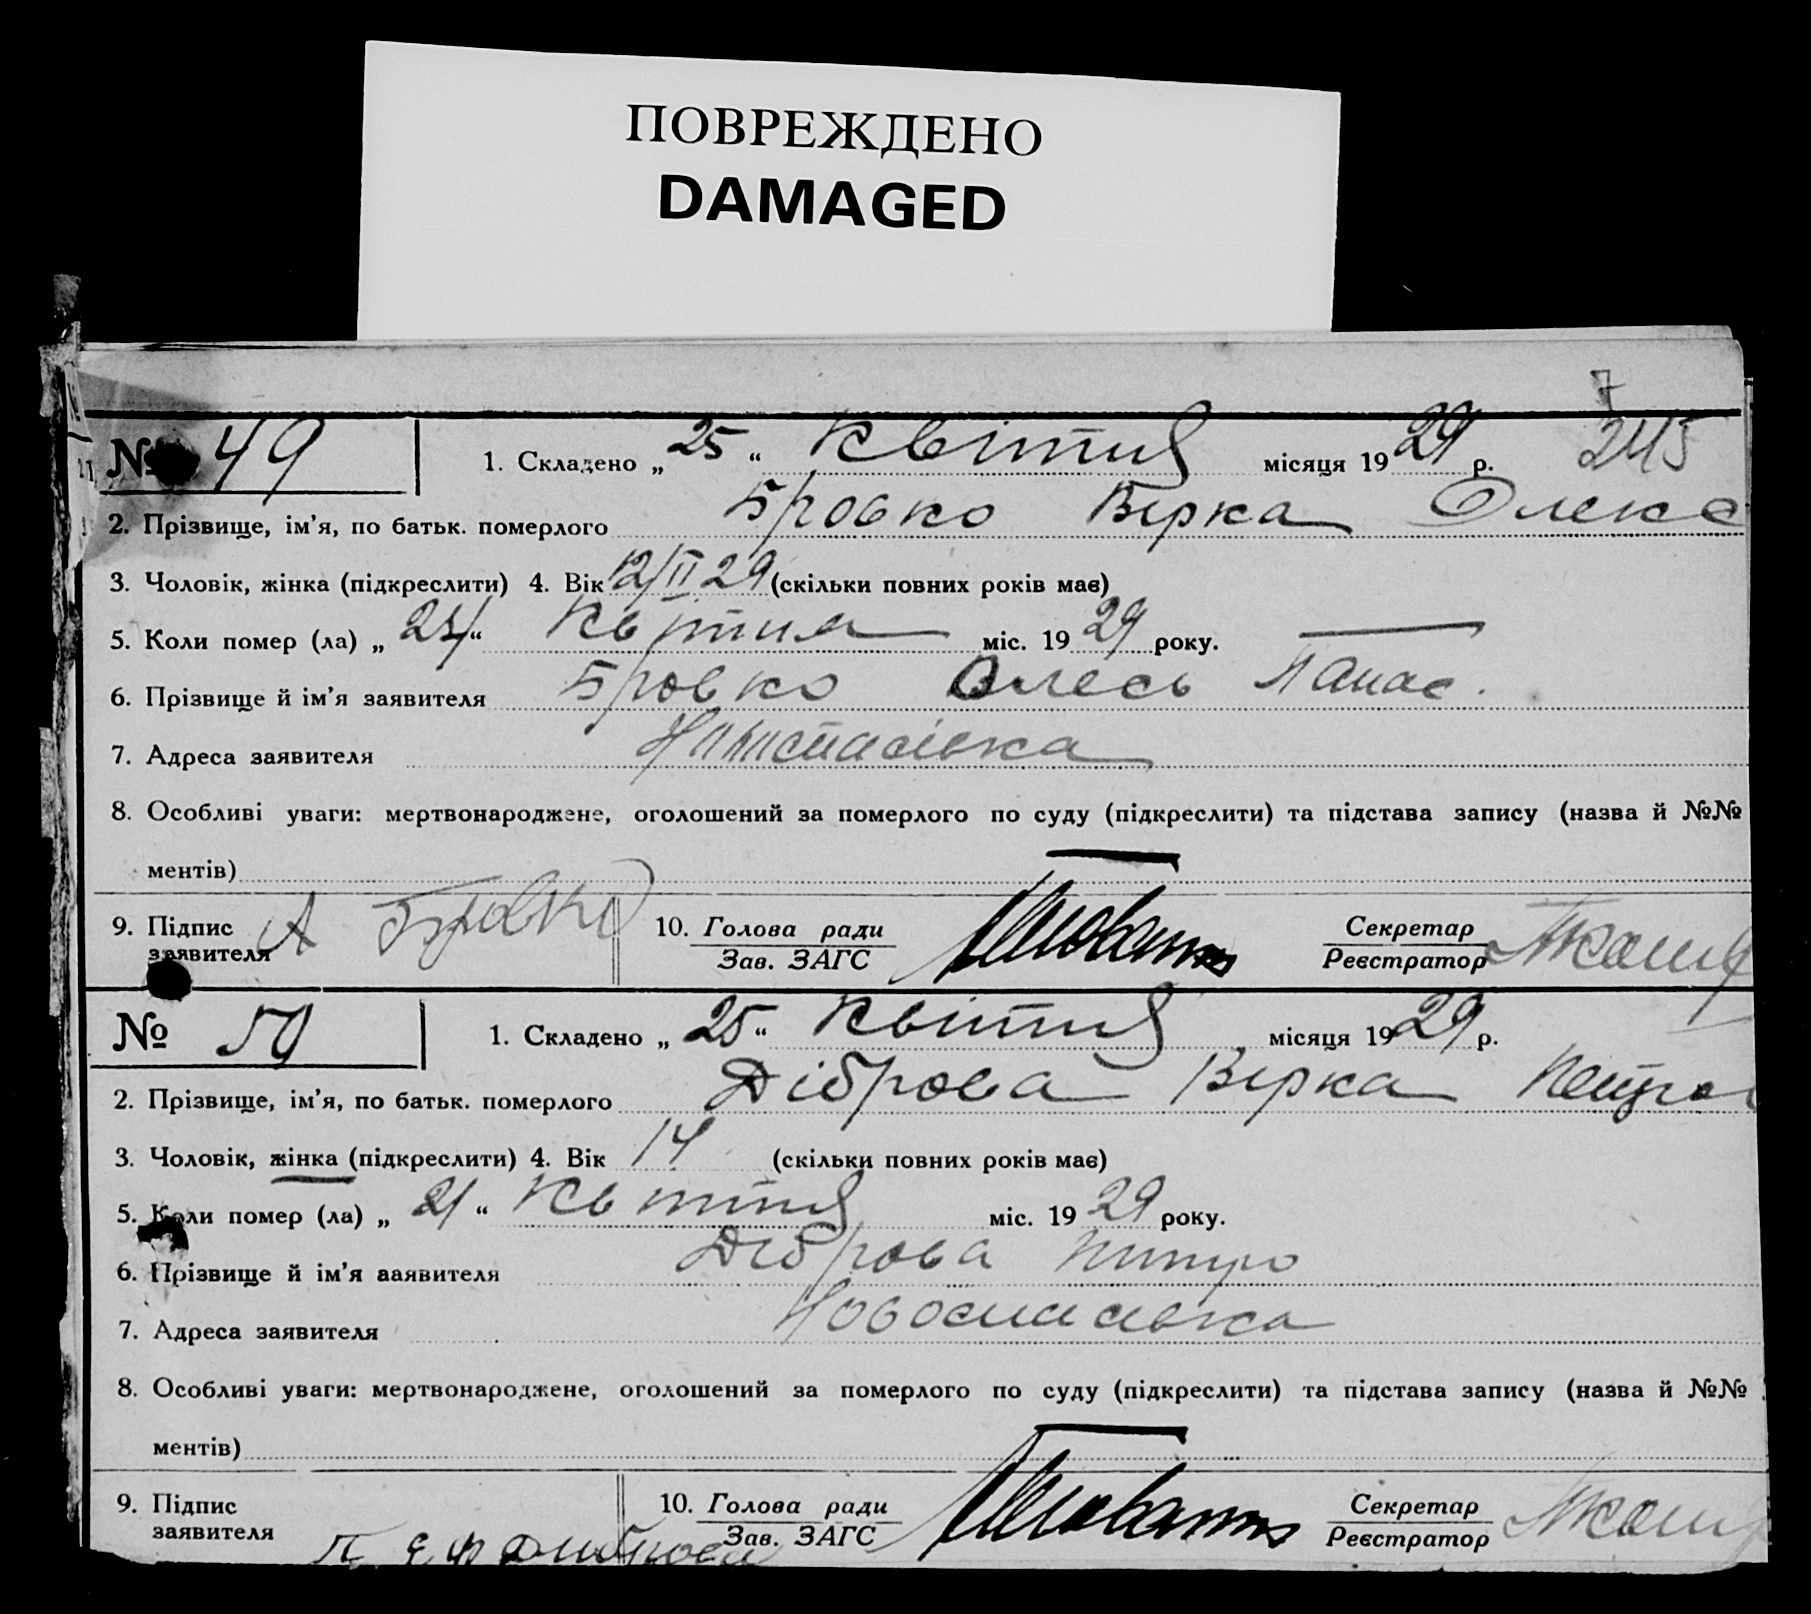 ПОВРЕЖДЕНО
DAMAGED
7
№ 49 1. Складено „ 25 “ Квітня місяця 19 29 р. 245
2. Прізвище, ім’я, по батьк. померлого Бровко Вірка Олекс
3. Чоловік, жінка (підкреслити) 4. Вік 12/II 29 (скільки повних років має)
5. Коли помер (ла) „ 24 “ Квітня міс. 19 29 року.
6. Прізвище й ім’я заявителя Бровко Олесь Панас.
7. Адреса заявителя
8. Особливі уваги: мертвонароджене, оголошений за померлого по суду (підкреслити) та підстава запису (назва й №№
ментів)
9. Підпис заявителя А Бровко 10. Голова ради Секретар
Зав. ЗАГС Реєстратор
№ 50 1. Складено „ 25 “ Квітня місяця 19 29 р.
2. Прізвище, ім’я, по батьк. померлого Діброва Вірка Петро
3. Чоловік, жінка (підкреслити) 4. Вік 14 (скільки повних років має)
5. Коли помер (ла) „ 21 “ Квітня міс. 19 29 року.
6. Прізвище й ім’я заявителя Діброва Питро
7. Адреса заявителя Новоспасівка
8. Особливі уваги: мертвонароджене, оголошений за померлого по суду (підкреслити) та підстава запису (назва й №№
ментів)
9. Підпис заявителя 10. Голова ради Секретар
Зав. ЗАГС Реєстратор